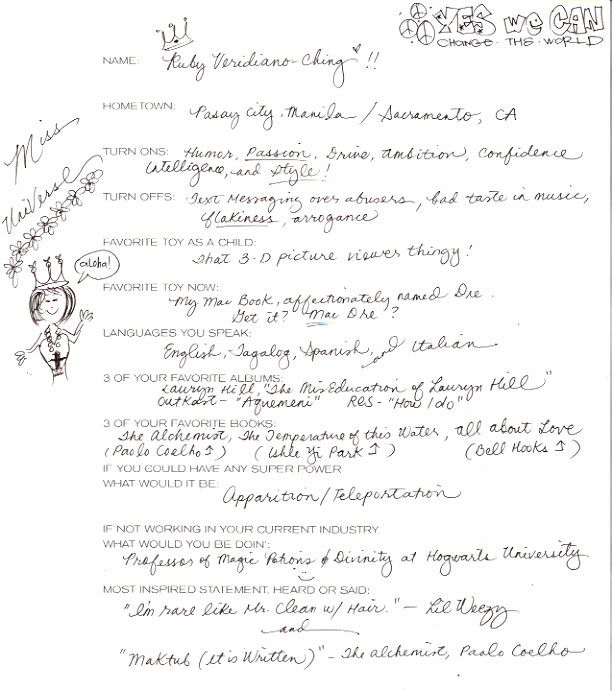 YES we CAN
CHANGE · THE · WORLD
NAME: Ruby Veridiano-Ching !!
HOMETOWN: Pasay City, Manila / Sacramento, CA
Miss
Universe
TURN ONS: Humor, Passion, Drive, Ambition, Confidence
Intelligence, and Style!
TURN OFFS: Text Messaging over abusers, bad taste in music,
flakiness, arrogance
FAVORITE TOY AS A CHILD:
That 3-D picture viewer thingy!
aloha!
FAVORITE TOY NOW:
My Mac Book, affectionately named Dre.
Get it? Mac Dre?
LANGUAGES YOU SPEAK:
English, Tagalog, Spanish, and Italian
3 OF YOUR FAVORITE ALBUMS:
Lauryn Hill, "The MisEducation of Lauryn Hill"
OutKast - "Aquemeni" RES - "How I do"
3 OF YOUR FAVORITE BOOKS:
The Alchemist, The Temperature of this Water, All about Love
(Paolo Coelho ↑) (Ishle Yi Park ↑) (Bell Hooks ↑)
IF YOU COULD HAVE ANY SUPER POWER
WHAT WOULD IT BE:
Apparition / Teleportation
IF NOT WORKING IN YOUR CURRENT INDUSTRY,
WHAT WOULD YOU BE DOIN':
Professor of Magic Potions & Divinity at Hogwarts University
MOST INSPIRED STATEMENT, HEARD OR SAID:
"I'm rare like Mr. Clean w/ Hair." - Lil Weezy
and
"Maktub (it is Written)" - The Alchemist, Paolo Coelho